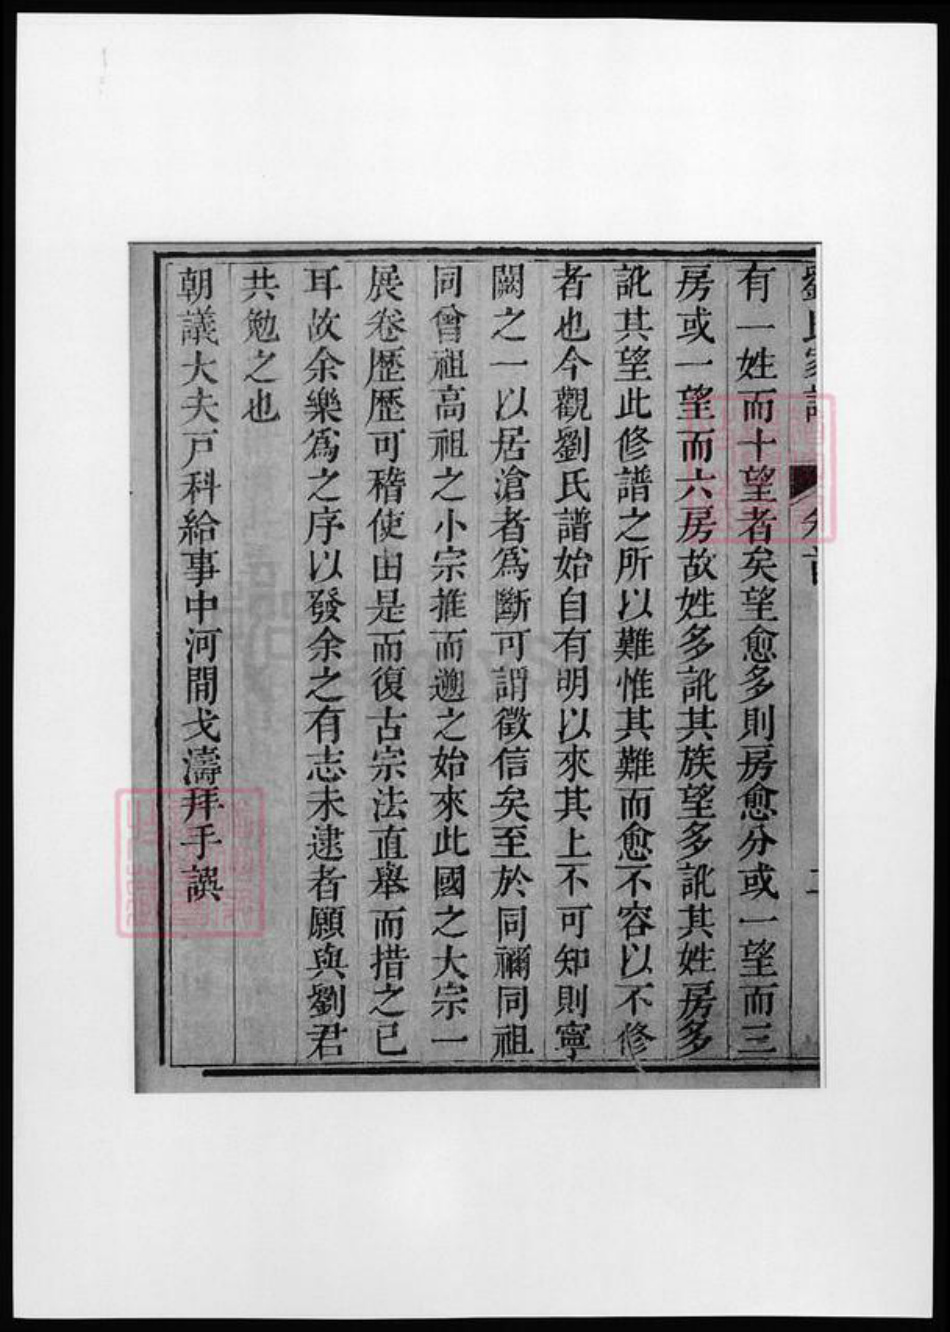 劉氏家譜 卷首 二
有一姓而十望者矣望愈多則房愈分或一望而三
房或一望而六房故姓多訛其族望多訛其姓房多
訛其望此修譜之所以難惟其難而愈不容以不修
者也今觀劉氏譜始自有明以來其上不可知則寧
闕之一以居滄者爲斷可謂徵信矣至於同禰同祖
同曾祖高祖之小宗推而遡之始來此國之大宗一
展卷歷歷可稽使由是而復古宗法直舉而措之已
耳故余樂爲之序以發余之有志未逮者願與劉君
共勉之也
朝議大夫戸科給事中河間戈濤拜手譔